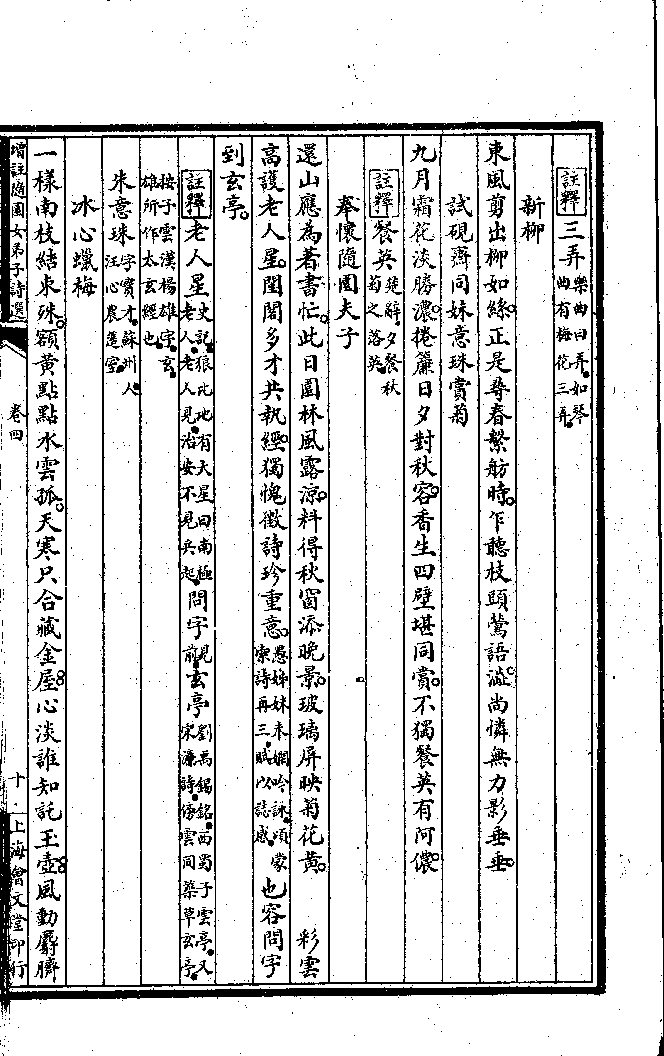 註釋三弄樂曲曰弄。如琴曲有梅花三弄。
新柳
東風剪出柳如絲。正是尋春繫舫時。乍聽枝頭鶯語澁。尚憐無力影垂垂。
試硯齋同妹意珠賞菊
九月霜花淡勝濃。捲簾日夕對秋容。香生四壁堪同賞。不獨餐英有阿儂。
註釋餐英楚辭。夕餐秋菊之落英。
奉懷隨園夫子
還山應為著書忙。此日園林風露涼。料得秋窗添晚景。玻璃屏映菊花黃。　彩雲
高護老人星。閨閤多才共執經。獨愧徵詩珍重意。愚姊妹未嫻吟詠。頃蒙索詩再三。賦以誌感。也容問字
到玄亭。
註釋老人星史記。狼比地有大星曰南極老人。老人見治安不見兵起。問字見前。玄亭劉禹錫銘。西蜀子雲亭。又宋濂詩。傍雲同築草玄亭。
按子雲漢楊雄字。玄雄所作太玄經也。
朱意珠字寶才。蘇州人汪心農簉室。
冰心蠟梅
一樣南枝結束殊。額黃點點水雲孤。天寒只合藏金屋。心淡誰知託玉壺。風動麝臍
增註隨園女弟子詩選　卷四　十　上海會文堂印行